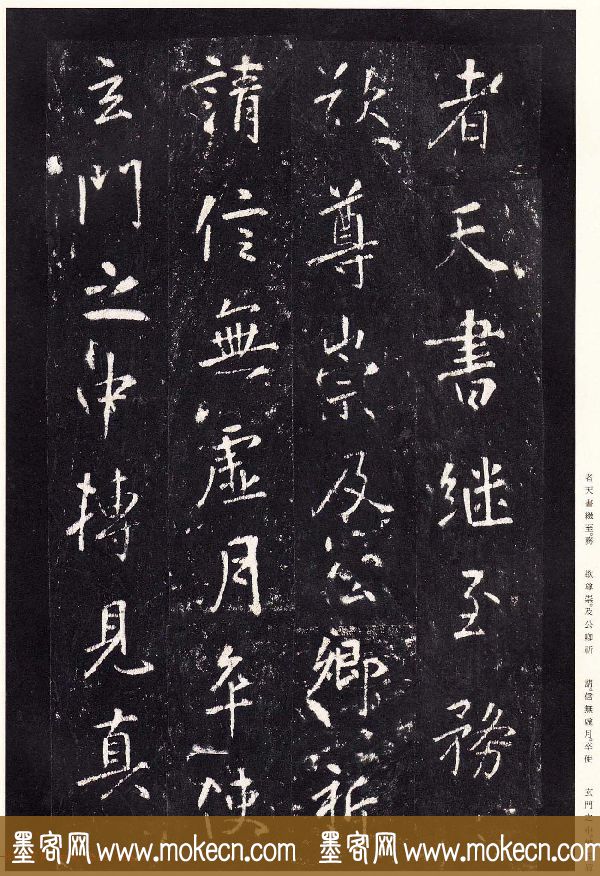 者天書継至務
欲尊崇及公卿祈
請信無虚月卒使
玄門之中轉見真
者天書継至。務
欲尊崇。及公卿祈
請。信無虚月。卒使
玄門之中
墨客网 www.mokecn.com 墨客网 www.mokecn.com